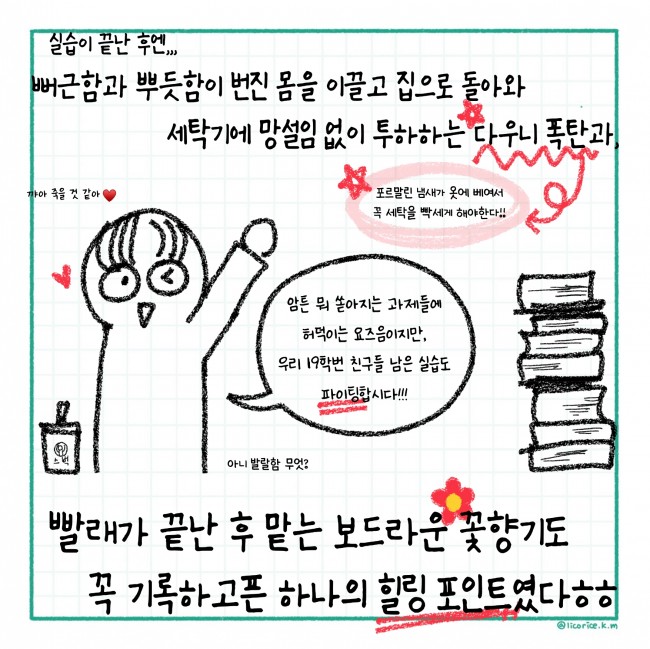 실습이 끝난 후엔,,,
뻐근함과 뿌듯함이 번진 몸을 이끌고 집으로 돌아와
세탁기에 망설임 없이 투하하는 다우니 폭탄과,
포르말린 냄새가 옷에 베여서
꼭 세탁을 빡세게 해야한다!!
꺄아 죽을 것 같아❤️
암튼 뭐 쏟아지는 과제들에
허덕이는 요즈음이지만,
우리 19학번 친구들 남은 실습도
파이팅합시다!!!
스벅
아니 발랄함 무엇?
빨래가 끝난 후 맡는 보드라운 꽃향기도
꼭 기록하고픈 하나의 힐링 포인트였다ㅎㅎ
@licorice.k.m